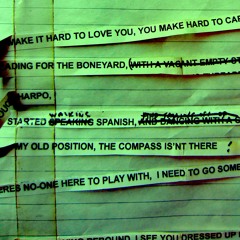 MAKE IT HARD TO LOVE YOU, YOU MAKE HARD TO CA
ADING FOR THE BONEYARD, WITH A VACANT EMPTY ST
HARPO,
WALKING
STARTED SPEAKING SPANISH, AND DANCING WITH A
MY OLD POSITION, THE COMPASS IS'NT THERE !
ERES NO-ONE HERE TO PLAY WITH, I NEED TO GO SOME
REBOUND, I SEE YOU DRESSED UP